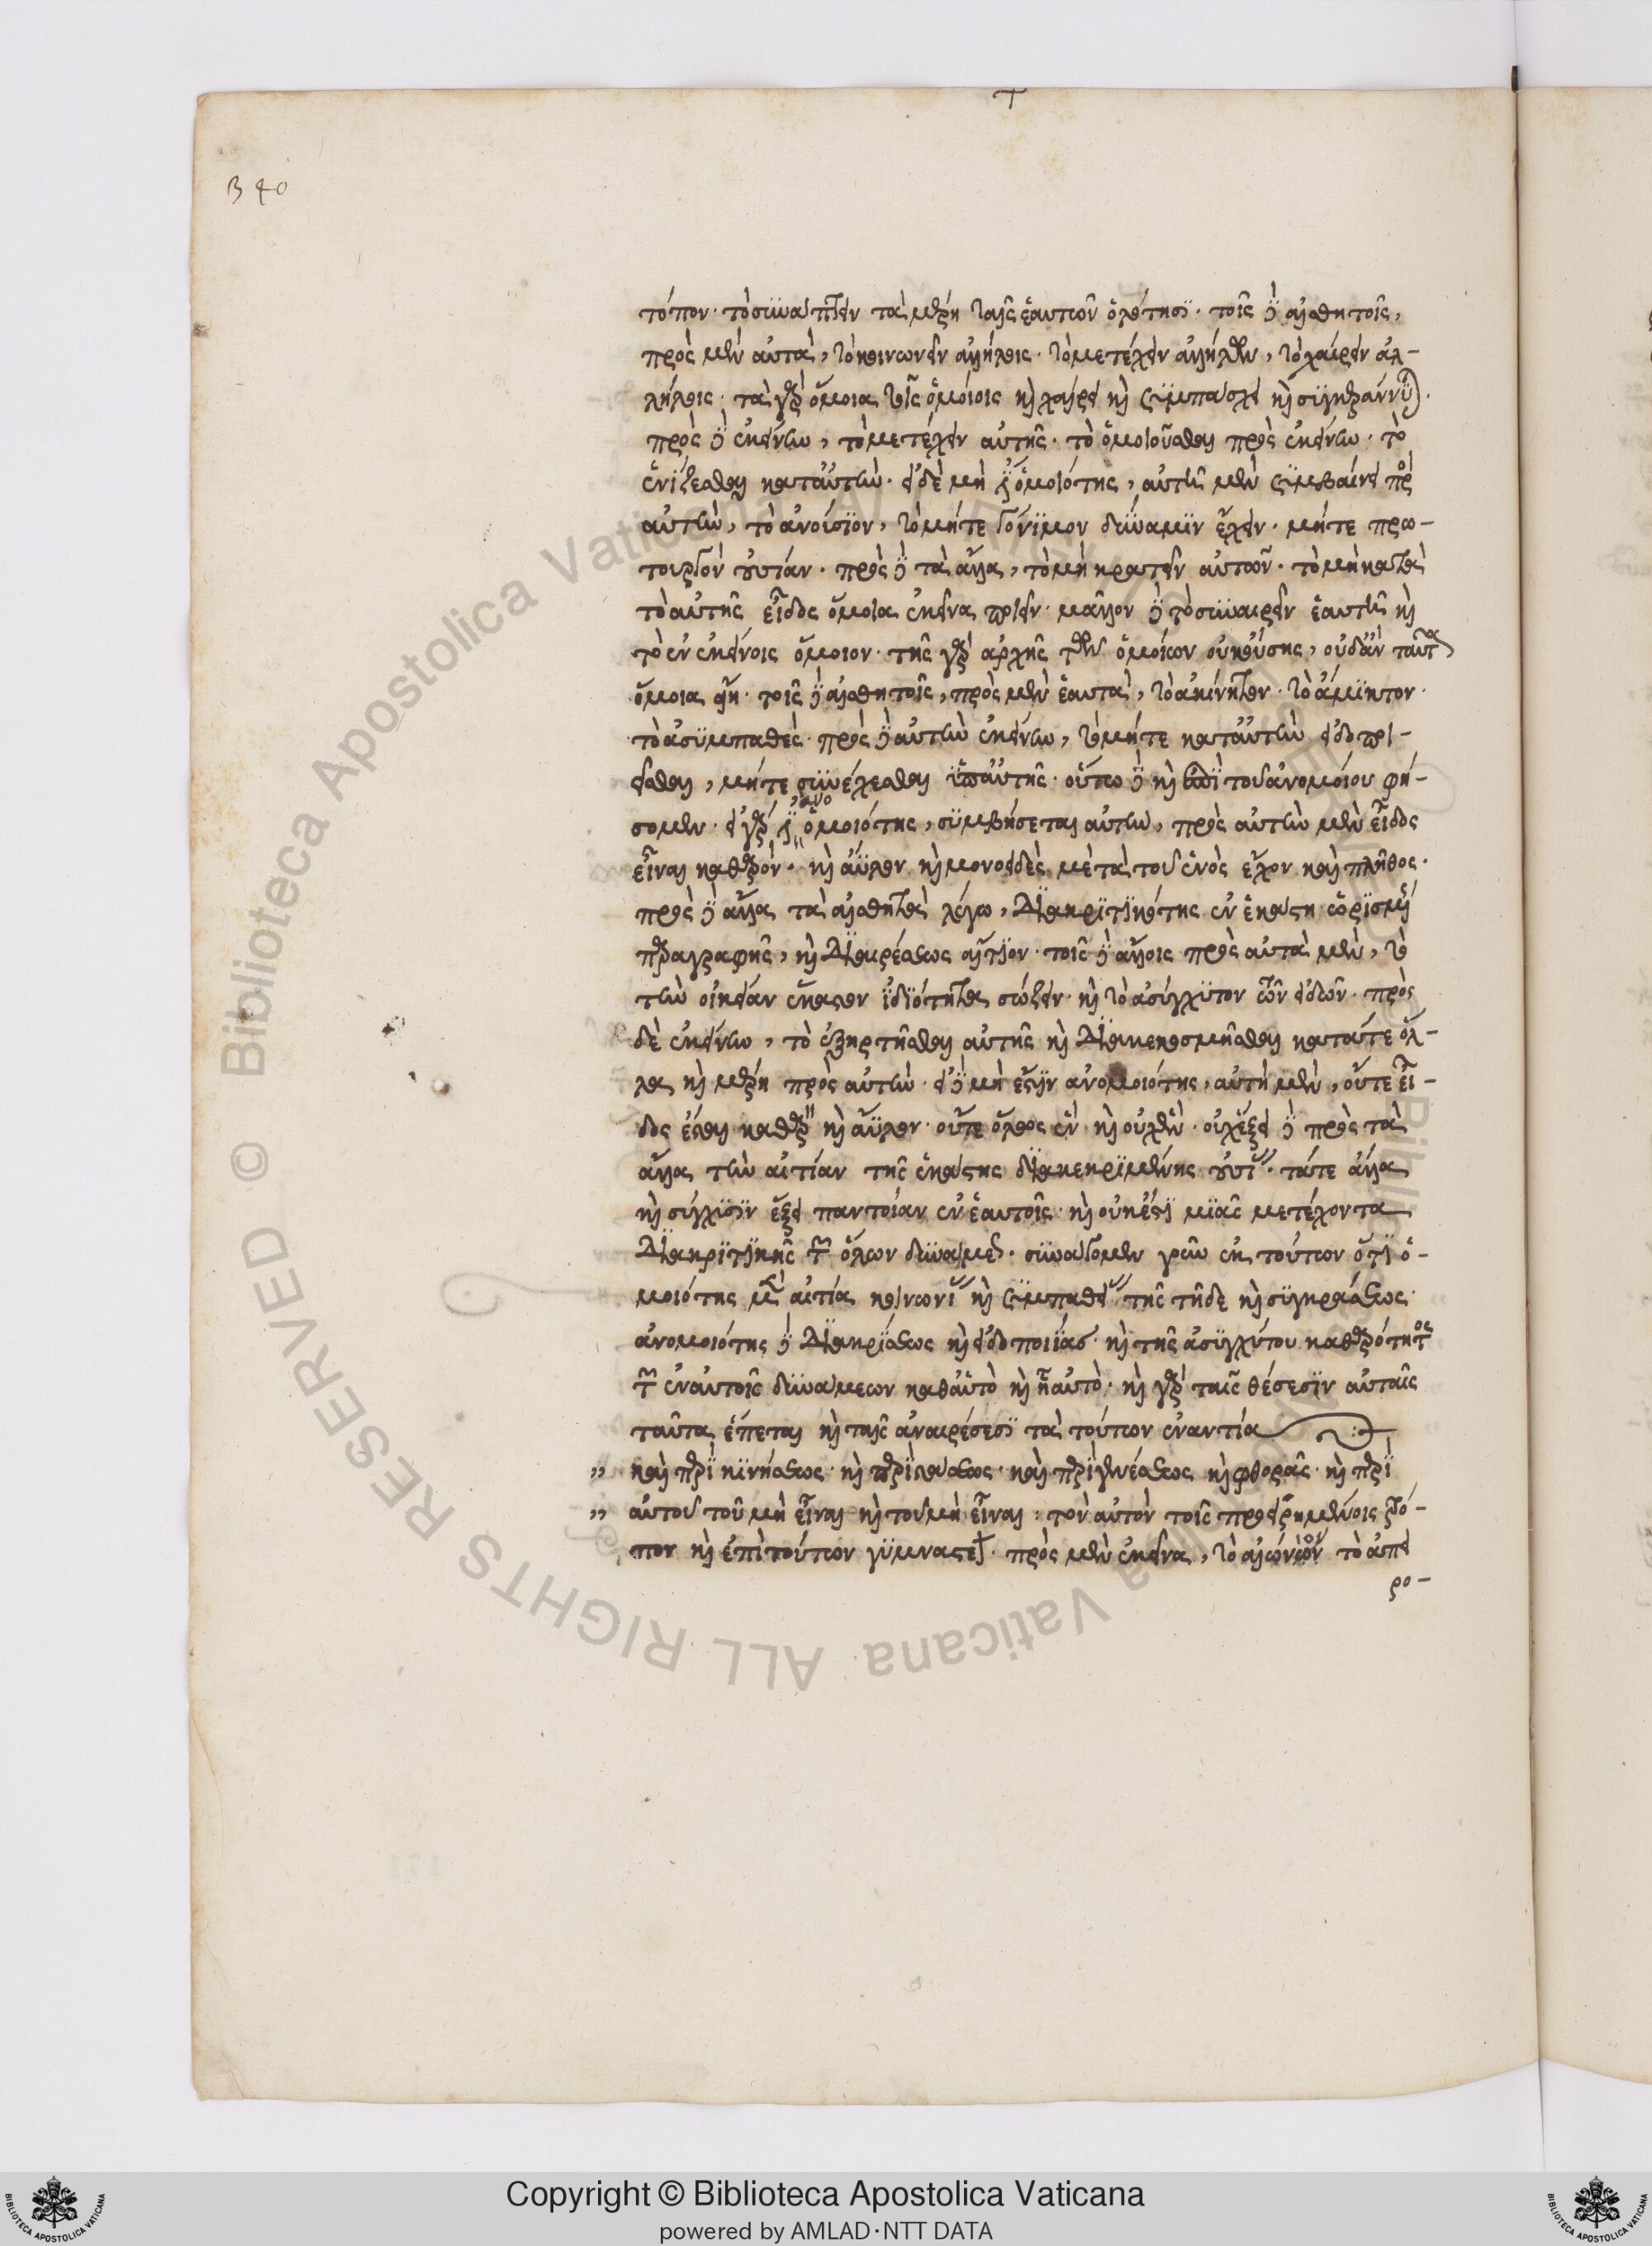 β 40
τόπον· τὸ συνάπτειν τὰ μέρη ταῖς ἑαυτῶν ὁλότησι· τοῖς δὲ αἰσθητοῖς,
πρὸς μὲν αὐτὰ, τὸ κοινωνεῖν ἀλλήλοις· τὸ μετέχειν ἀλλήλων, τὸ χαίρειν ἀλ-
λήλοις· τὰ γὰρ ὅμοια τοῖς ὁμοίοις καὶ χαίρει καὶ συμπάσχει καὶ συγκεράννυται.
πρὸς δὲ ἐκείνην, τὸ μετέχειν αὐτῆς· τὸ ὁμοιοῦσθαι πρὸς ἐκείνην· τὸ
ἑνίζεσθαι κατ' αὐτὴν· εἰ δὲ μὴ ἔστιν ὁμοιότης, αὐτῇ μὲν συμβαίνει πρὸς
αὐτὴν, τὸ ἀνούσιον, τὸ μήτε γόνιμον δύναμιν ἔχειν· μήτε πρω-
τουργὸν οὐσίαν· πρὸς δὲ τὰ ἄλλα, τὸ μὴ κρατεῖν αὐτῶν· τὸ μὴ κατὰ
τὸ αὐτῆς εἶδος ὅμοια ἐκεῖνα ποιεῖν· μᾶλλον δὲ τὸ συναιρεῖν ἑαυτῇ καὶ
τὸ ἐν ἐκείνοις ὅμοιον· τῆς γὰρ ἀρχῆς τῶν ὁμοίων οὐκ οὔσης, οὐδ' ἂν ταῦτα
ὅμοια εἴη· τοῖς δὲ αἰσθητοῖς, πρὸς μὲν ἑαυτὰ, τὸ ἀκίνητον· τὸ ἄμικτον·
τὸ ἀσυμπαθές· πρὸς δὲ αὐτὴν ἐκείνην, τὸ μήτε κατ' αὐτὴν εἰδοποι-
εῖσθαι, μήτε συνέχεσθαι ὑπ' αὐτῆς· οὕτω δὲ καὶ ἐπὶ τοῦ ἀνομοίου φή-
σομεν· εἰ γὰρ ἔστιν ἀνομοιότης, συμβήσεται αὐτῇ, πρὸς αὐτὴν μὲν εἶδος
εἶναι καθαρόν· καὶ ἄυλον καὶ μονοειδὲς μετὰ τοῦ ἑνὸς ἔχον καὶ πλῆθος·
πρὸς δὲ ἄλλα τὰ αἰσθητὰ λέγω, διακριτικότης ἐν ἑκάστῃ
περιγραφῆς, καὶ διαιρέσεως αἴτιον· τοῖς δὲ ἄλλοις πρὸς αὐτὰ μὲν, τὸ
τὴν οἰκείαν ἕκαστον ἰδιότητα σώζειν· καὶ τὸ ἀσύγχυτον τῶν εἰδῶν· πρὸς
δὲ ἐκείνην, τὸ ἐξηρτῆσθαι αὐτῆς καὶ διακεκοσμῆσθαι κατά τε ὅλ-
λα καὶ μέρη πρὸς αὐτὴν· εἰ δὲ μὴ ἔστιν ἀνομοιότης, αὐτὴ μὲν, οὔτε εἶ-
δος ἔσται καθαρὸν καὶ ἄυλον· οὔτε ὅλως ἓν καὶ οὐχ ἕν· οὐχ ἕξει δὲ πρὸς τὰ
ἄλλα τὴν αἰτίαν τῆς ἑκάστης διακεκριμένης οὐσίας· τά τε ἄλλα
καὶ σύγχυσιν ἕξει παντοίαν ἐν ἑαυτοῖς· καὶ οὐκ ἔστι μιᾶς μετέχοντα
διακριτικῆς τῶν ὅλων δυνάμεως· συνάγομεν γοῦν ἐκ τούτων ὅτι ὁ-
μοιότης μέν ἐστιν αἰτία κοινωνίας καὶ συμπαθείας τῆς τῇδε καὶ συγκράσεως·
ἀνομοιότης δὲ διακρίσεως καὶ εἰδοποιίας· καὶ τῆς ἀσυγχύτου καθαρότητος
τῶν ἐν αὐτοῖς δυνάμεων καθ' αὑτὸ καὶ ᾗ αὐτὸ· καὶ γὰρ ταῖς θέσεσιν αὐταῖς
ταῦτα ἕπεται καὶ ταῖς ἀναιρέσεσι τὰ τούτων ἐναντία
,, καὶ περὶ κινήσεως· καὶ περὶ στάσεως· καὶ περὶ γενέσεως καὶ φθορᾶς· καὶ περὶ
,, αὐτοῦ τοῦ μὴ εἶναι καὶ τοῦ μὴ εἶναι: τὸν αὐτὸν τοῖς προειρημένοις τρό-
πον καὶ ἐπὶ τούτων γυμναστέον· πρὸς μὲν ἐκεῖνα, τὸ αἰώνιον τὸ ἀπει
ρο-